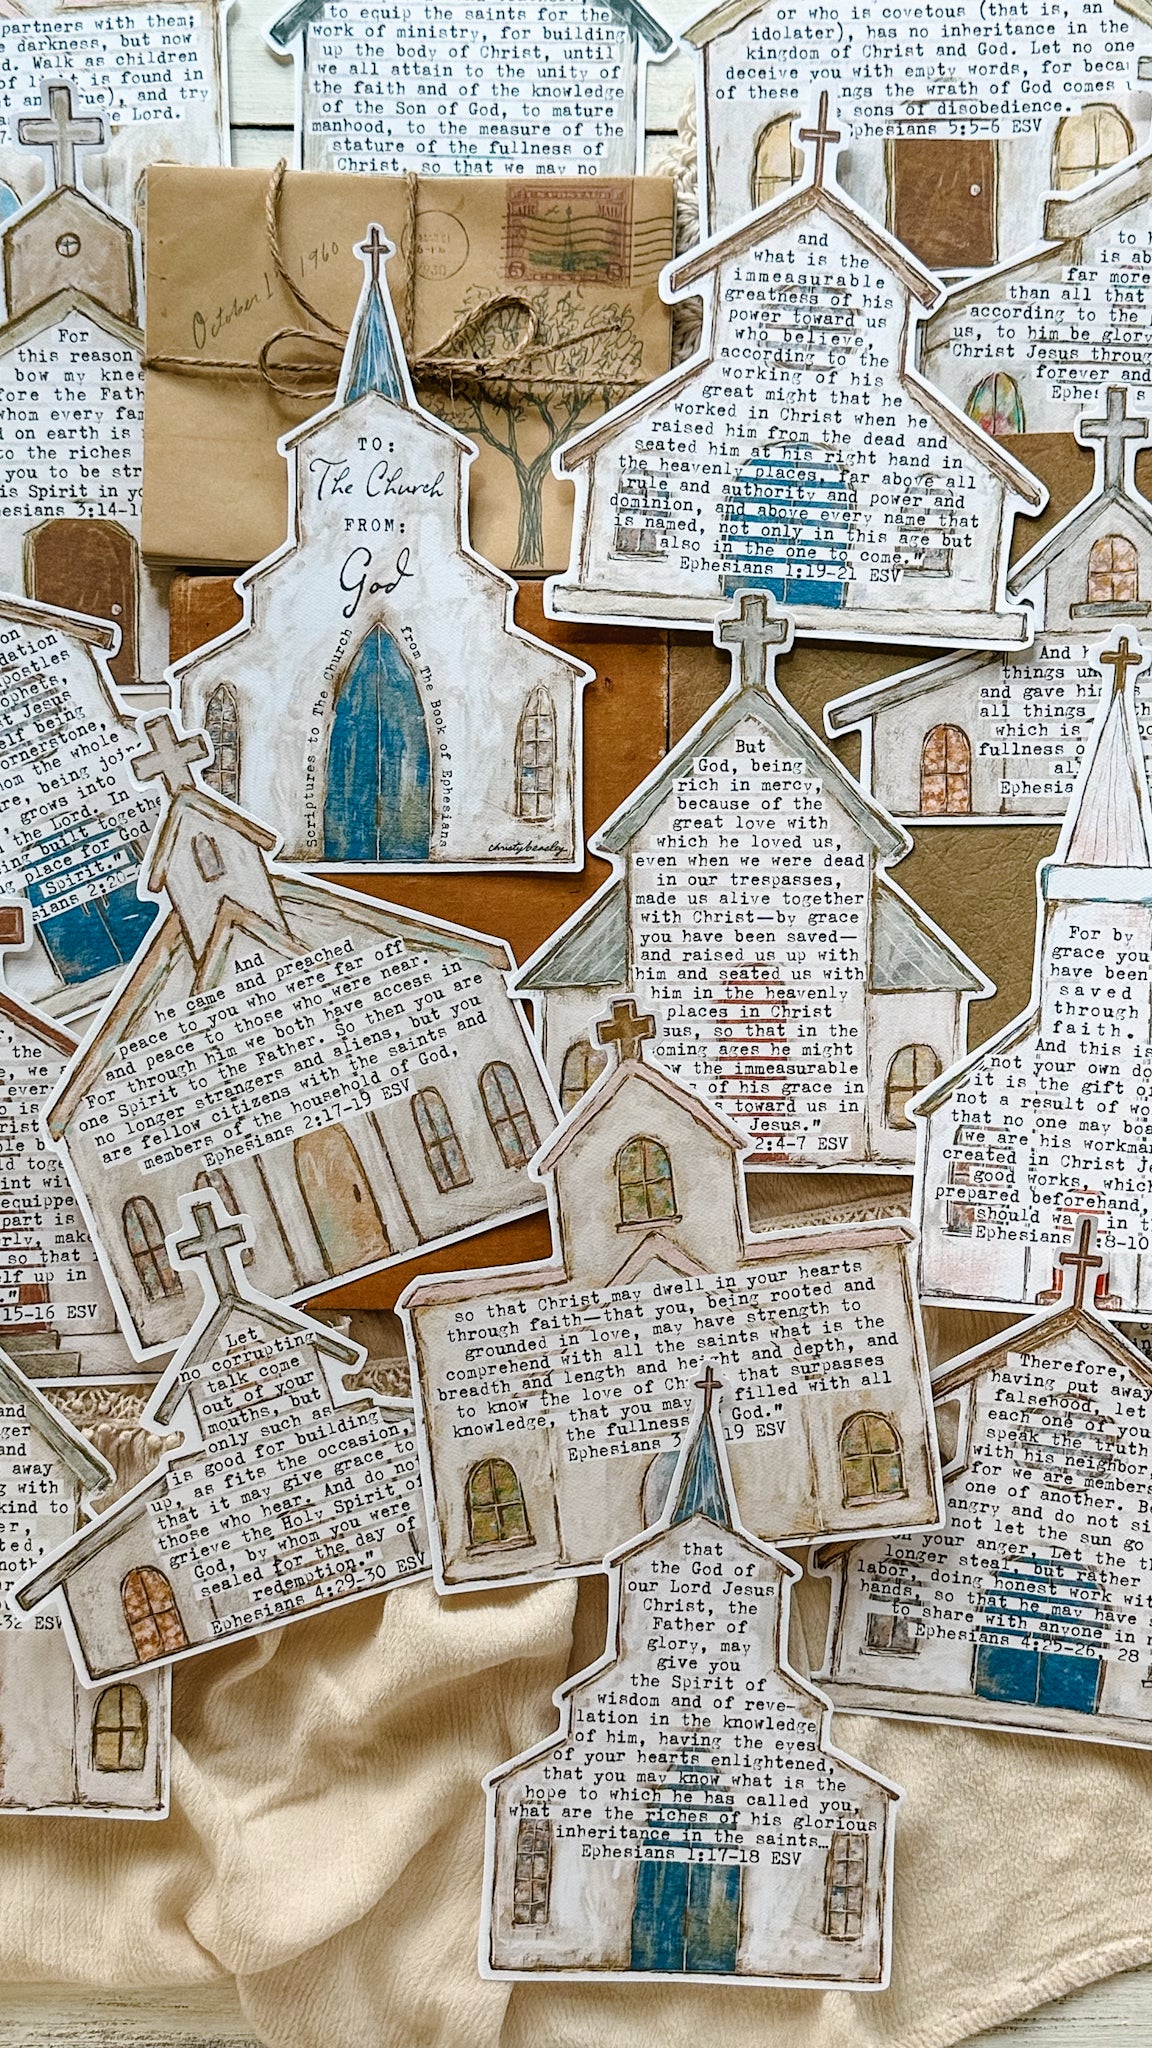 partners with them;
darkness, but now
Walk as children
is found in
and try
the Lord.
to equip the saints for the
work of ministry, for building
up the body of Christ, until
we all attain to the unity of
the faith and of the knowledge
of the Son of God, to mature
manhood, to the measure of the
stature of the fullness of
Christ, so that we may no
or who is covetous (that is, an
idolater), has no inheritance in the
kingdom of Christ and God. Let no one
deceive you with empty words, for
of these the wrath of God comes
sons of disobedience.
Ephesians 5:5-6 ESV
October 1960
For
this reason
bow my
whom every
on earth is
to the riches
you to be
Spirit in
3:14-
TO:
The Church
FROM:
God
Scriptures to The Church
from The Book of Ephesians
christybeasley
and
what is the
immeasurable
greatness of his
power toward us
who believe,
according to the
working of his
great might that he
worked in Christ when he
raised him from the dead and
seated him at his right hand in
the heavenly places, far above all
rule and authority and power and
dominion, and above every name that
is named, not only in this age but
also in the one to come."
Ephesians 1:19-21 ESV
to
is
far more
than all that
according to the
us, to him be glory
Christ Jesus
forever and
on
Jesus
being
cornerstone,
whom the whole
being
grows into
the Lord. In
built together
place for God
Spirit."
2:20-
And
things
and gave
all things
which is
fullness
But
God, being
rich in mercy,
because of the
great love with
which he loved us,
even when we were dead
in our trespasses,
made us alive together
with Christ—by grace
you have been saved—
and raised us up with
him and seated us with
him in the heavenly
places in Christ
so that in the
ages he might
the immeasurable
of his grace in
toward us in
Jesus."
2:4-7 ESV
For by
grace you
have been
saved
through
faith.
And this is
not your own
it is the gift of
not a result of
that no one may
we are his
created in Christ
good works,
prepared beforehand,
should
Ephesians 8-10
And
he came and preached
peace to you who were far off
and peace to those who were near.
For through him we both have access in
one Spirit to the Father. So then you are
no longer strangers and aliens, but you
are fellow citizens with the saints and
members of the household of God,
Ephesians 2:17-19 ESV
the
we
is
with
part is
so that
up in
15-16 ESV
so that Christ may dwell in your hearts
through faith—that you, being rooted and
grounded in love, may have strength to
comprehend with all the saints what is the
breadth and length and height and depth, and
to know the love of that surpasses
knowledge, that you may filled with all
the fullness God."
Ephesians 3 19 ESV
Let
no corrupting
talk come
out of your
mouths, but
only such as
is good for building
up, as fits the occasion,
that it may give grace to
those who hear. And do not
grieve the Holy Spirit of
God, by whom you were
sealed for the day of
redemption."
Ephesians 4:29-30 ESV
and
and
away
with
kind to
-32 ESV
Therefore,
having put away
falsehood, let
each one of
speak the truth
with his neighbor,
for we are members
one of another.
angry and do not
not let the sun go
your anger, Let the
longer steal, but rather
labor, doing honest work
hands, so that he may have
to share with anyone in
Ephesians 4:25-26, 28
that
the God of
our Lord Jesus
Christ, the
Father of
glory, may
give you
the Spirit of
wisdom and of reve-
lation in the knowledge
of him, having the eyes
of your hearts enlightened,
that you may know what is the
hope to which he has called you,
what are the riches of his glorious
inheritance in the saints…
Ephesians 1:17-18 ESV